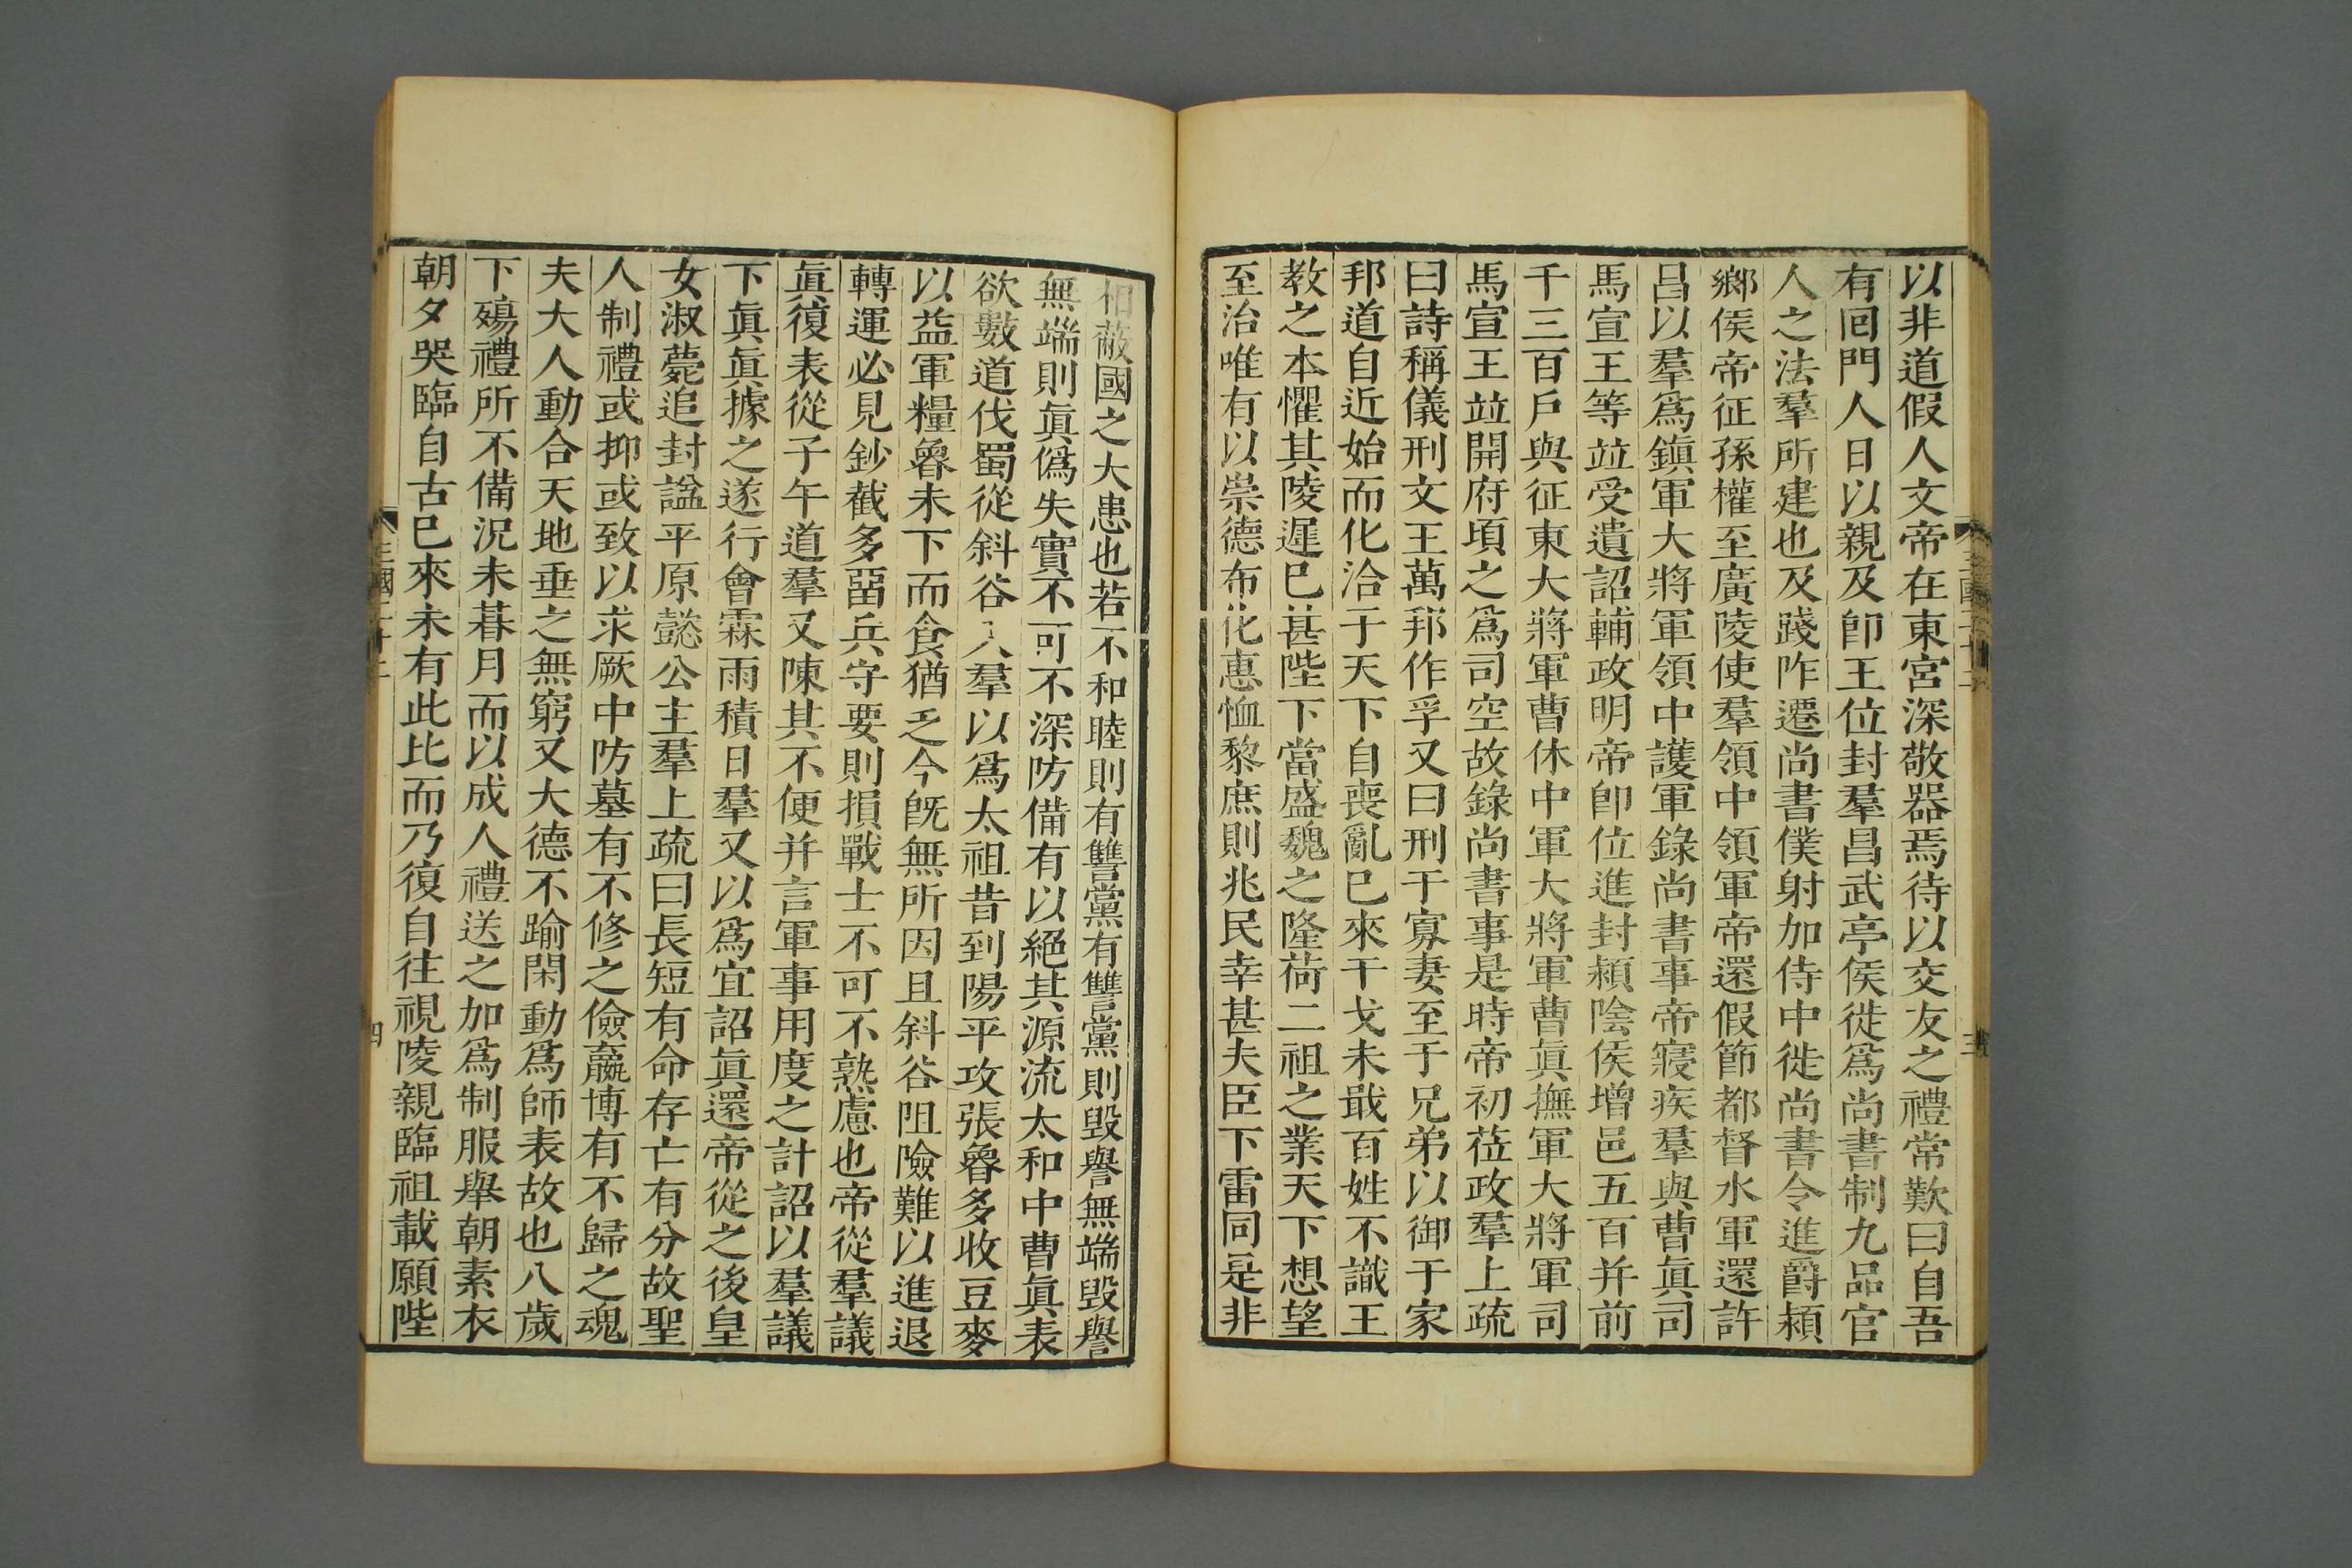 以非道假人文帝在東宮深敬器焉待以交友之禮常歎曰自吾
有回門人日以親及卽王位封羣昌武亭侯徙爲尚書制九品官
人之法羣所建也及踐阼遷尚書僕射加侍中徙尚書令進爵潁
鄉侯帝征孫權至廣陵使羣領中領軍帝還假節都督水軍還許
昌以羣爲鎮軍大將軍領中護軍錄尚書事帝寢疾羣與曹眞司
馬宣王等竝受遺詔輔政明帝卽位進封潁陰侯增邑五百并前
千三百戶與征東大將軍曹休中軍大將軍曹眞撫軍大將軍司
馬宣王竝開府頃之爲司空故錄尚書事是時帝初莅政羣上疏
曰詩稱儀刑文王萬邦作孚又曰刑于寡妻至于兄弟以御于家
邦道自近始而化洽于天下自喪亂已來干戈未戢百姓不識王
教之本懼其陵遲已甚陛下當盛魏之隆荷二祖之業天下想望
至治唯有以崇德布化惠恤黎庶則兆民幸甚夫臣下雷同是非
相蔽國之大患也若不和睦則有讐黨有讐黨則毁譽無端毁譽
無端則眞僞失實不可不深防備有以絕其源流太和中曹眞表
欲數道伐蜀從斜谷入羣以爲太祖昔到陽平攻張魯多收豆麥
以益軍糧魯未下而食猶乏今旣無所因且斜谷阻險難以進退
轉運必見鈔截多畱兵守要則損戰士不可不熟慮也帝從羣議
眞復表從子午道羣又陳其不便并言軍事用度之計詔以羣議
下眞眞據之遂行會霖雨積日羣又以爲宜詔眞還帝從之後皇
女淑薨追封諡平原懿公主羣上疏曰長短有命存亡有分故聖
人制禮或抑或致以求厥中防墓有不修之儉嬴博有不歸之魂
夫大人動合天地垂之無窮又大德不踰閑動爲師表故也八歲
下殤禮所不備況未朞月而以成人禮送之加爲制服舉朝素衣
朝夕哭臨自古已來未有此比而乃復自往視陵親臨祖載願陛
四